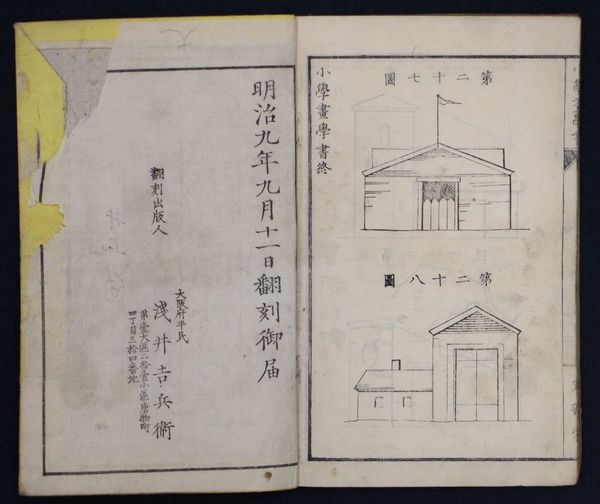 第二十七圖
第二十八圖
小學畫學書終
明治九年九月十一日翻刻御届
翻刻出版人
大阪府平民
浅井吉兵衛
第壹大區二拾壹小區唐物町
四丁目三拾四番地